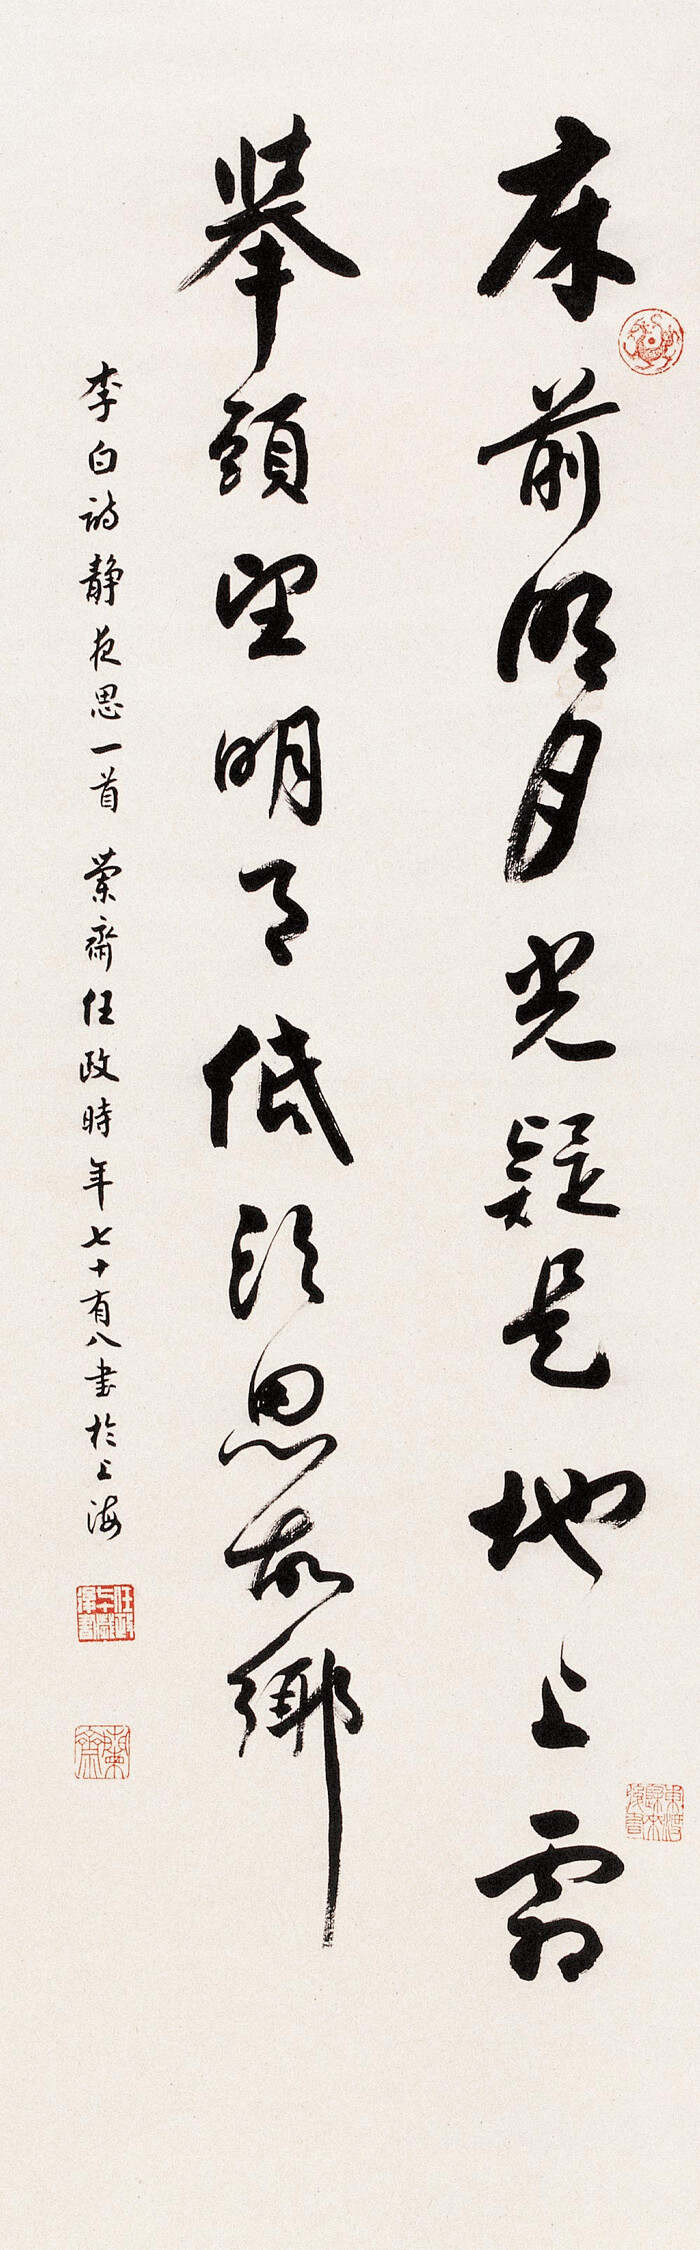 床前明月光疑是地上霜
舉頭望明月低頭思故鄉
李白詩靜夜思一首 蘭齋任政時年七十有八書於上海
蘭齋